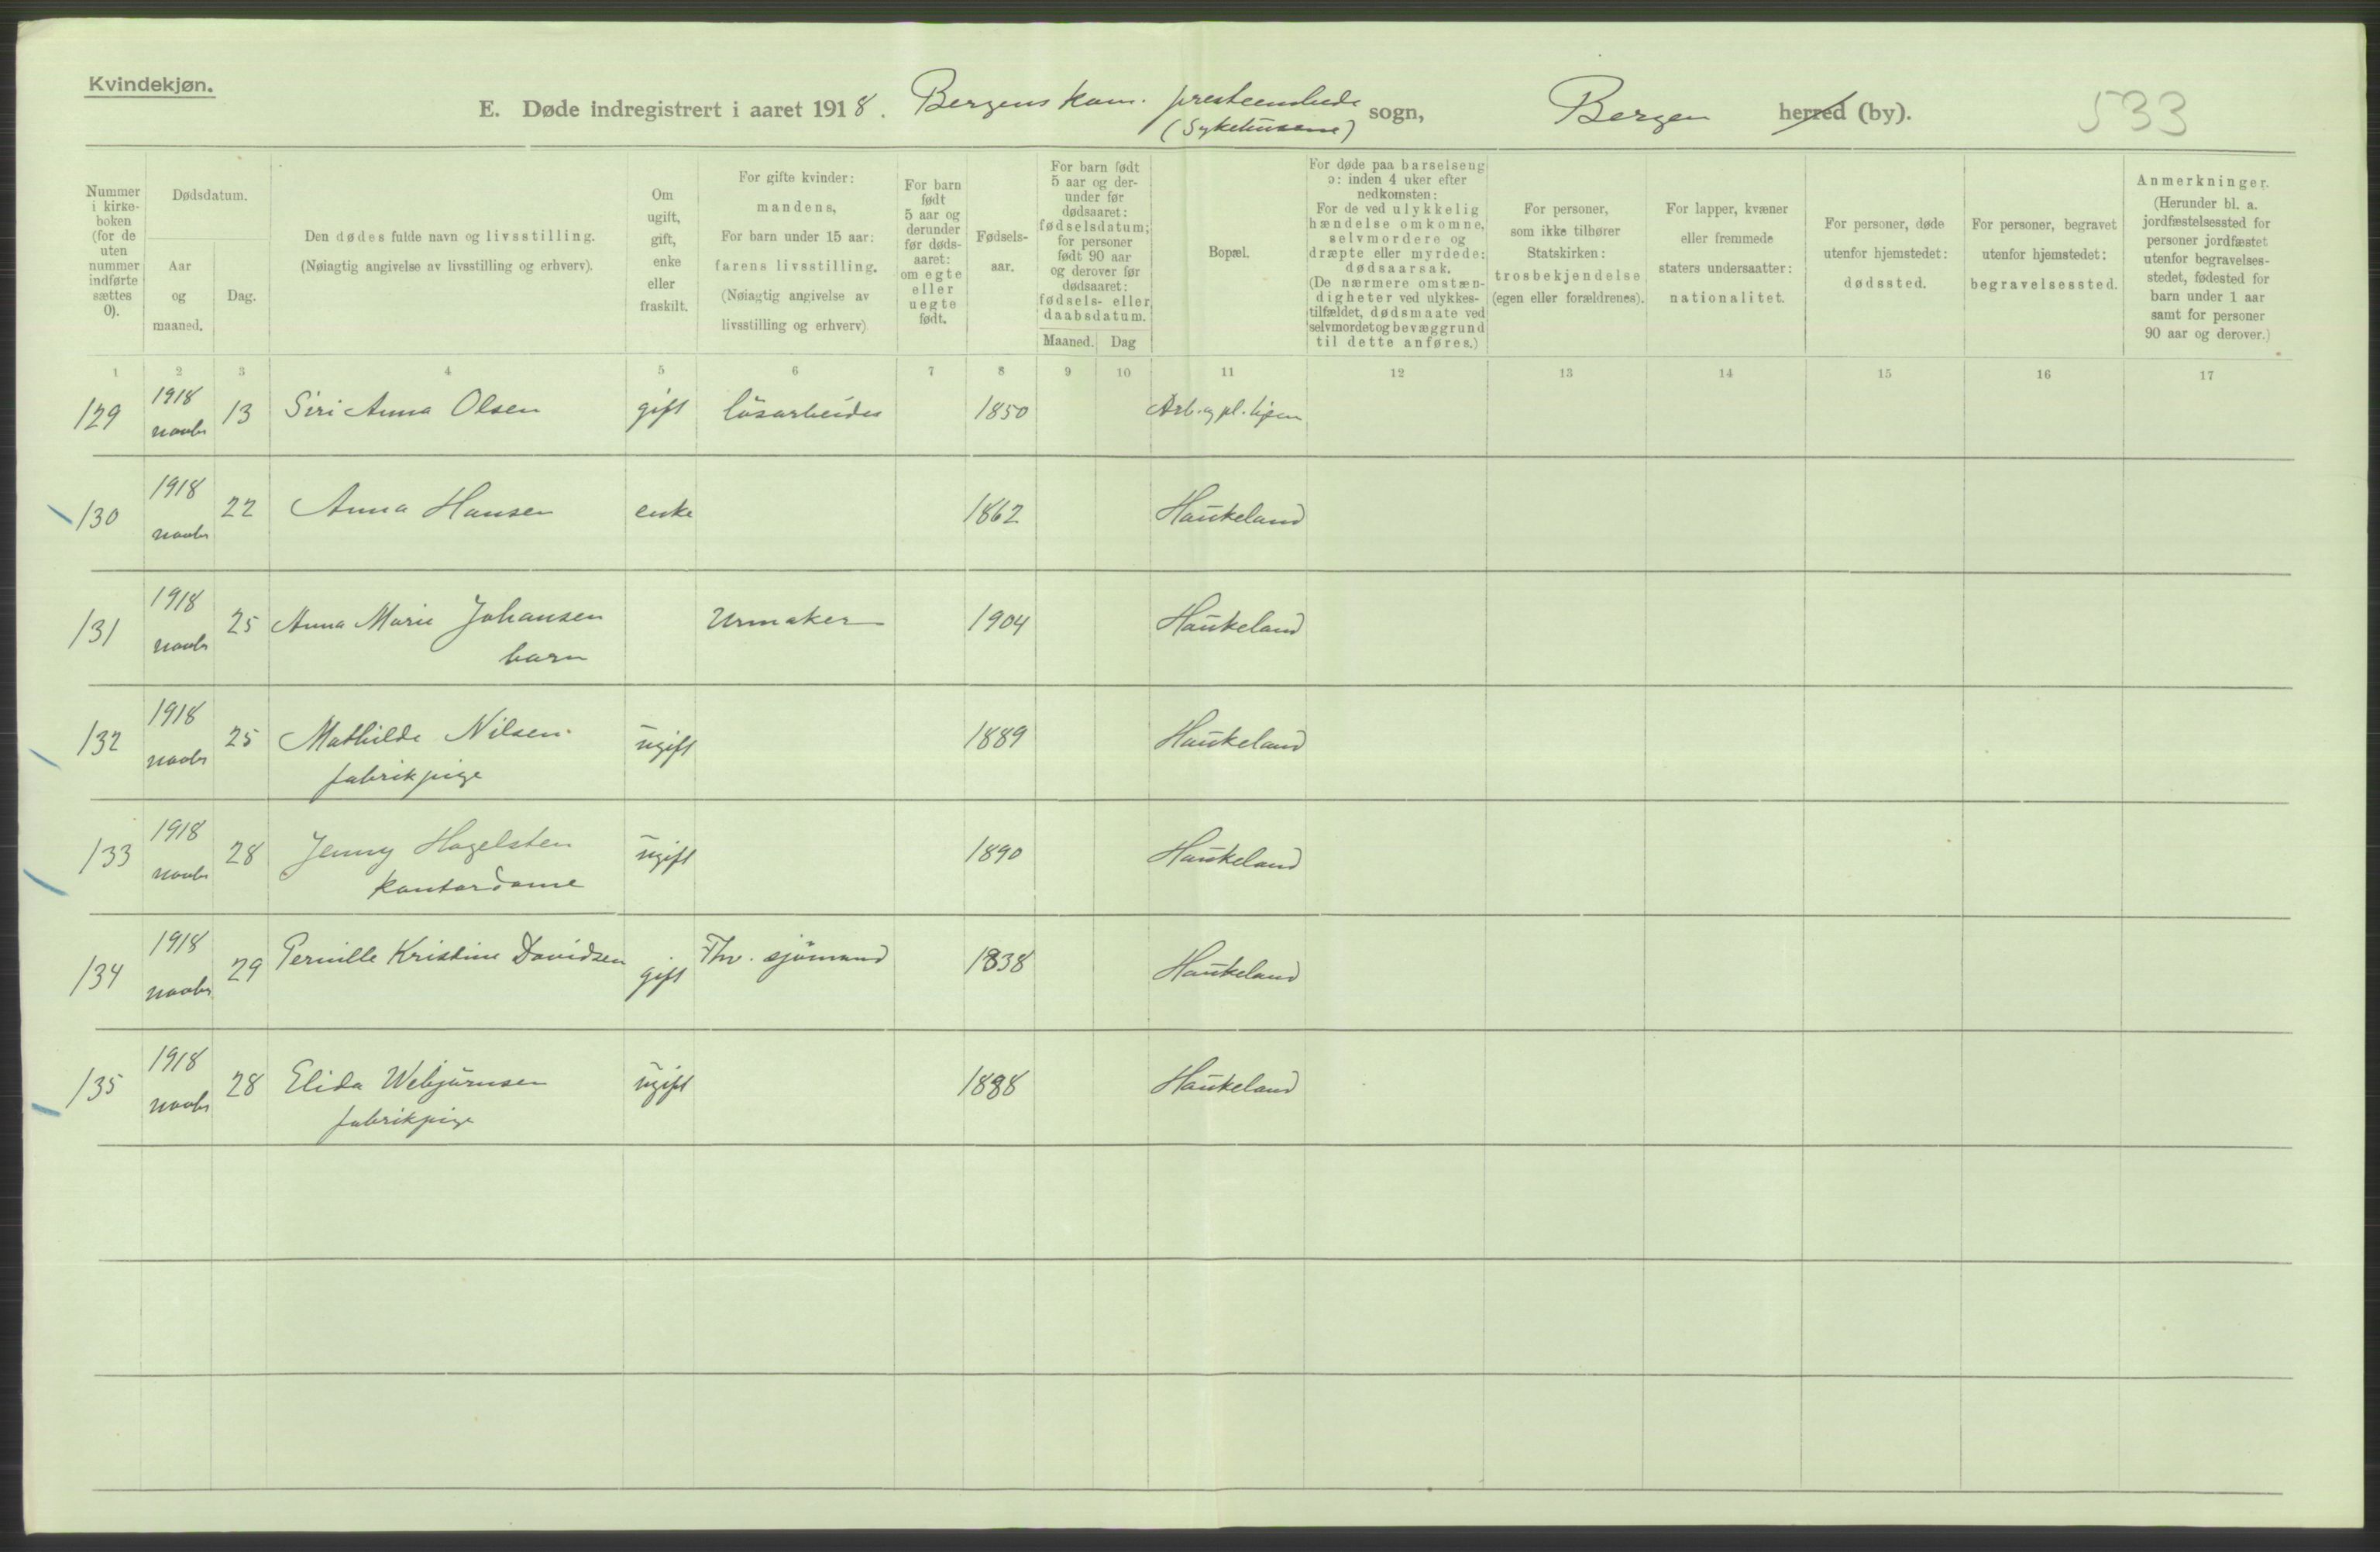 Kvindekjøn.
E. Døde indregistrert i aaret 1918. Bergens kom. presteembede (Sykehusene) sogn, Bergen herred (by). 533
Nummer i kirkeboken (for de uten nummer indførte sættes 0).
Dødsdatum.
Aar og maaned.
Dag.
Den dødes fulde navn og livsstilling.
(Nøiagtig angivelse av livsstilling og erhverv).
Om ugift, gift, enke eller fraskilt.
For gifte kvinder: mandens,
For barn under 15 aar: farens livsstilling.
(Nøiagtig angivelse av livsstilling og erhverv)
For barn født 5 aar og derunder før dødsaaret: om egte eller uegte født.
Fødselsaar.
For barn født 5 aar og derunder før dødsaaret: fødselsdatum; for personer født 90 aar og derover før dødsaaret: fødsels- eller daabsdatum.
Maaned. Dag
Bopæl.
For døde paa barselseng ɔ: inden 4 uker efter nedkomsten:
For de ved ulykkelig hændelse omkomne, selvmordere og dræpte eller myrdede: dødsaarsak.
(De nærmere omstændigheter ved ulykkestilfældet, dødsmaate ved selvmordet og bevæggrund til dette anføres.)
For personer, som ikke tilhører Statskirken: trosbekjendelse (egen eller forældrenes).
For lapper, kvæner eller fremmede staters undersaatter: nationalitet.
For personer, døde utenfor hjemstedet: dødssted.
For personer, begravet utenfor hjemstedet: begravelsessted.
Anmerkninger.
(Herunder bl. a. jordfæstelsessted for personer jordfæstet utenfor begravelsesstedet, fødested for barn under 1 aar samt for personer 90 aar og derover.)
1 2 3 4 5 6 7 8 9 10 11 12 13 14 15 16 17
129 1918 novbr 13 Siri Anna Olsen gift løsarbeider 1850 Arb. og pl. hjem
130 1918 novbr 22 Anna Hansen enke 1862 Haukeland
131 1918 novbr 25 Anna Marie Johansen barn Urmaker 1904 Haukeland
132 1918 novbr 25 Mathilde Nilsen fabrikpige ugift 1889 Haukeland
133 1918 novbr 28 Jenny Hagelsten kontordame ugift 1890 Haukeland
134 1918 novbr 29 Pernille Kristine Davidsen gift Fhv. sjømand 1838 Haukeland
135 1918 novbr 28 Elida Webjørnsen fabrikpige ugift 1888 Haukeland